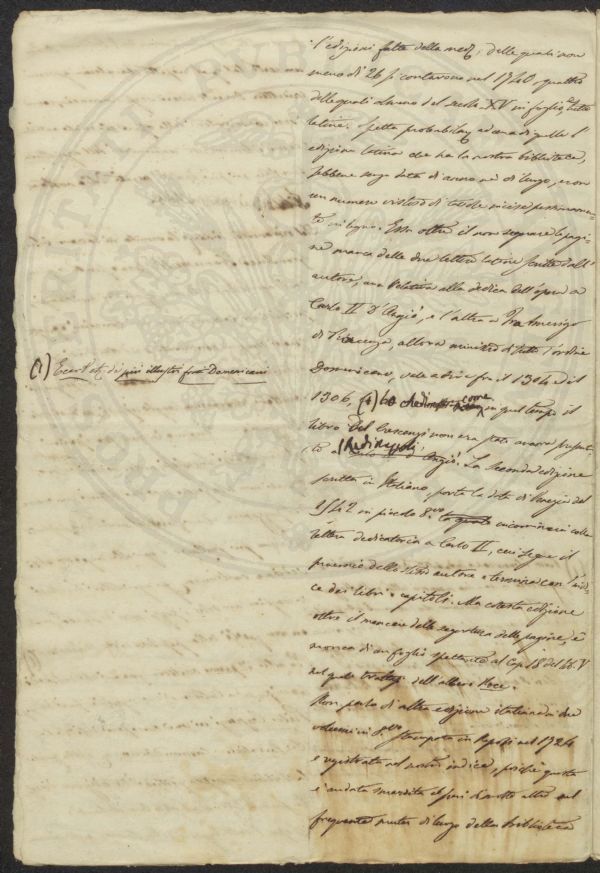 l'edizioni fatte della med.ª, delle quali non
meno di 26 si contavano nel 1740, quattro
delle quali almeno del secolo XV in foglio, e tutte
latine. Spetta probabilm. ad una di quelle l'
edizione latina che ha la nostra biblioteca,
sebbene senza data di anno nè di luogo, e con
un numero di tavole incise
in legno. Essa oltre il non segnare le pagi-
ne manca delle due lettere latine scritte dall'
autore, una relativa alla dedica dell'opera a
Carlo II d'Angiò, e l'altra a Fra Amerigo
di Piacenza, allora ministro di tutto l'ordine
Domenicano, vale a dire fra il 1304 ed il
1306, (1) come in quel tempo il
libro del Crescenzi non era stato ancora presenta-
to a Re di Napoli d'Angiò. La seconda edizione
scritta in Italiano, porta la data di Venezia del
1542 in piccolo 8.vo incomincia colla
lettera dedicatoria a Carlo II, cui segue il
proemio dello stesso autore e termina con l'indi-
ce dei libri e capitoli. Ma cotesta edizione
oltre il mancare della segnatura delle pagine, è
monca di un foglio spettante al Cap. 18 del Lib. V
nel quale trattasi dell'albero Noce.
Non parlo di altra edizione italiana in due
volumi in 8.vo stampata in Napoli nel 1724
e registrata nel nostro indice, poichè questa
è andata smarrita al pari di molte altre nel
frequente mutar di luogo della biblioteca
(1) Ecard etc. di più illustri fra Domenicani